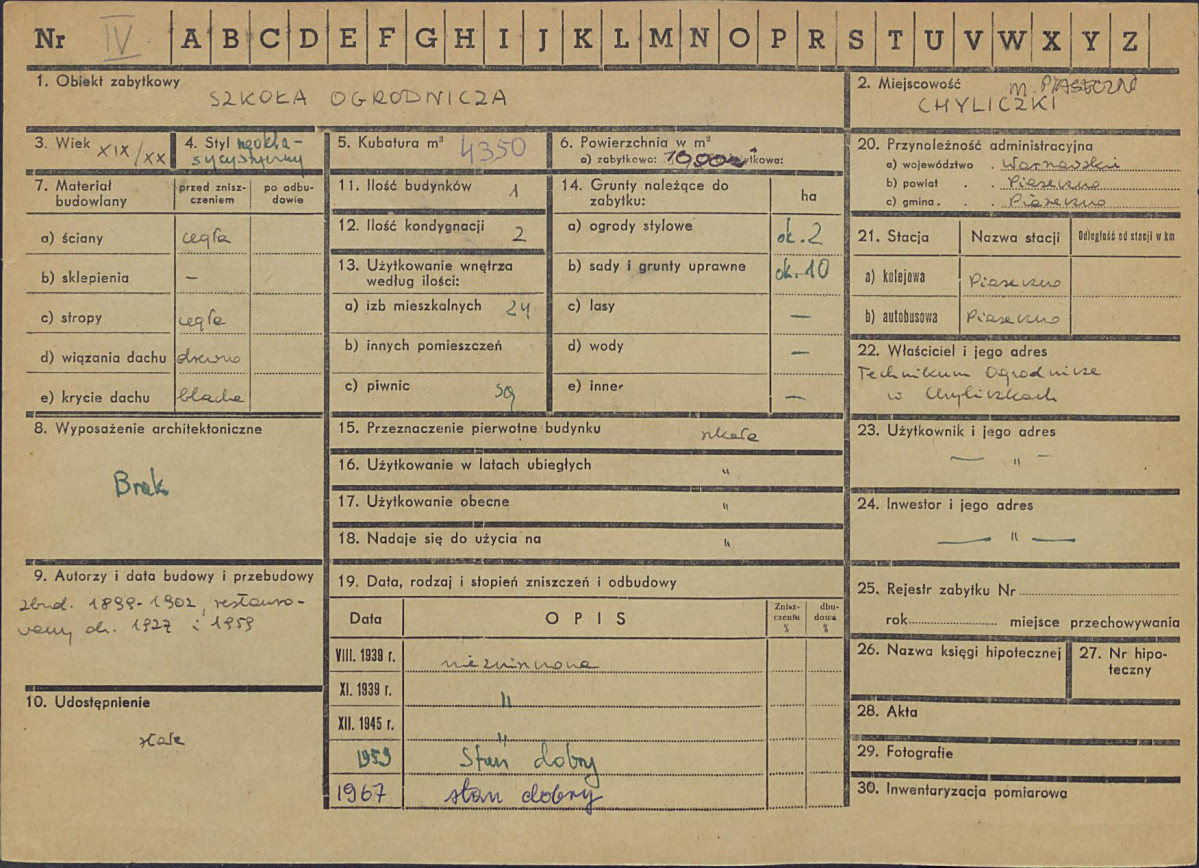 Nr IV A B C D E F G H I J K L M N O P R S T U V W X Y Z
1. Obiekt zabytkowy
SZKOŁA OGRODNICZA
2. Miejscowość m. PIASECZNO
CHYLICZKI
3. Wiek XIX/XX
4. Styl neokla-
sycystyczny
5. Kubatura m³ 4350
6. Powierzchnia w m²
a) zabytkowa:
7. Materiał
budowlany
przed znisz-
czeniem
po odbu-
dowie
a) ściany cegła
b) sklepienia –
c) stropy cegła
d) wiązania dachu drewno
e) krycie dachu blacha
8. Wyposażenie architektoniczne
Brak
9. Autorzy i data budowy i przebudowy
zbud. 1899-1902, restauro-
wany ok. 1927 i 1959
10. Udostępnienie
stałe
11. Ilość budynków 1
12. Ilość kondygnacji 2
13. Użytkowanie wnętrza
według ilości:
a) izb mieszkalnych 24
b) innych pomieszczeń
c) piwnic są
14. Grunty należące do
zabytku:
ha
a) ogrody stylowe ok. 2
b) sady i grunty uprawne ok. 10
c) lasy –
d) wody –
e) inne –
15. Przeznaczenie pierwotne budynku szkoła
16. Użytkowanie w latach ubiegłych "
17. Użytkowanie obecne "
18. Nadaje się do użycia na "
19. Data, rodzaj i stopień zniszczeń i odbudowy
Data OPIS Znisz-
czenia
%
dbu-
dowa
%
VIII. 1939 r. niezniszczona
XI. 1939 r. "
XII. 1945 r. "
1959 Stan dobry
1967 stan dobry
20. Przynależność administracyjna
a) województwo . Warszawskie
b) powiat . . Piaseczno
c) gmina . . . Piaseczno
21. Stacja Nazwa stacji Odległość od stacji w km
a) kolejowa Piaseczno
b) autobusowa Piaseczno
22. Właściciel i jego adres
Technikum Ogrodnicze
w Chyliczkach
23. Użytkownik i jego adres
– " –
24. Inwestor i jego adres
— " —
25. Rejestr zabytku Nr
rok miejsce przechowywania
26. Nazwa księgi hipotecznej
27. Nr hipo-
teczny
28. Akta
29. Fotografie
30. Inwentaryzacja pomiarowa